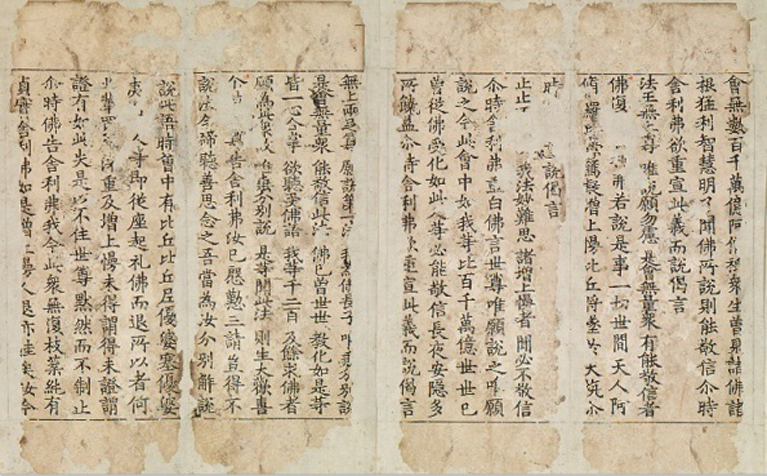 會無數百千萬億阿僧祇衆生曾見諸佛諸
根猛利智慧明了聞佛所說則能敬信尒時
舍利弗欲重宣此義而說偈言
法王無上尊 唯說願勿慮 是會無量衆 有能敬信者
佛復 弗若說是事一切世間天人阿
脩羅皆當驚疑增上慢比丘將墜於大坑尒
時 說偈言
止止 我法妙難思 諸增上慢者 聞必不敬信
尒時舍利弗重白佛言世尊唯願說之唯願
說之今此會中如我等比百千萬億世世已
曾從佛受化如此人等必能敬信長夜安隱多
所饒益尒時舍利弗欲重宣此義而說偈言
無上兩足尊 願說第一法 我為佛長子 唯垂分別說
是會無量衆 能敬信此法 佛已曾世世 教化如是等
皆一心合掌 欲聽受佛語 我等千二百 及餘求佛者
願為此衆故 唯垂分別說 是等聞此法 則生大歡喜
尒 尊告舍利弗汝已慇懃三請豈得不
說汝今諦聽善思念之吾當為汝分別解說
說此語時會中有比丘比丘尼優婆塞優婆
夷 人等即從座起礼佛而退所以者何
此輩罪 深重及增上慢未得謂得未證謂
證有如此失是以不住世尊默然而不制止
尒時佛告舍利弗我今此衆無復枝葉純有
貞實舍利弗如是增上慢人退亦佳矣汝今